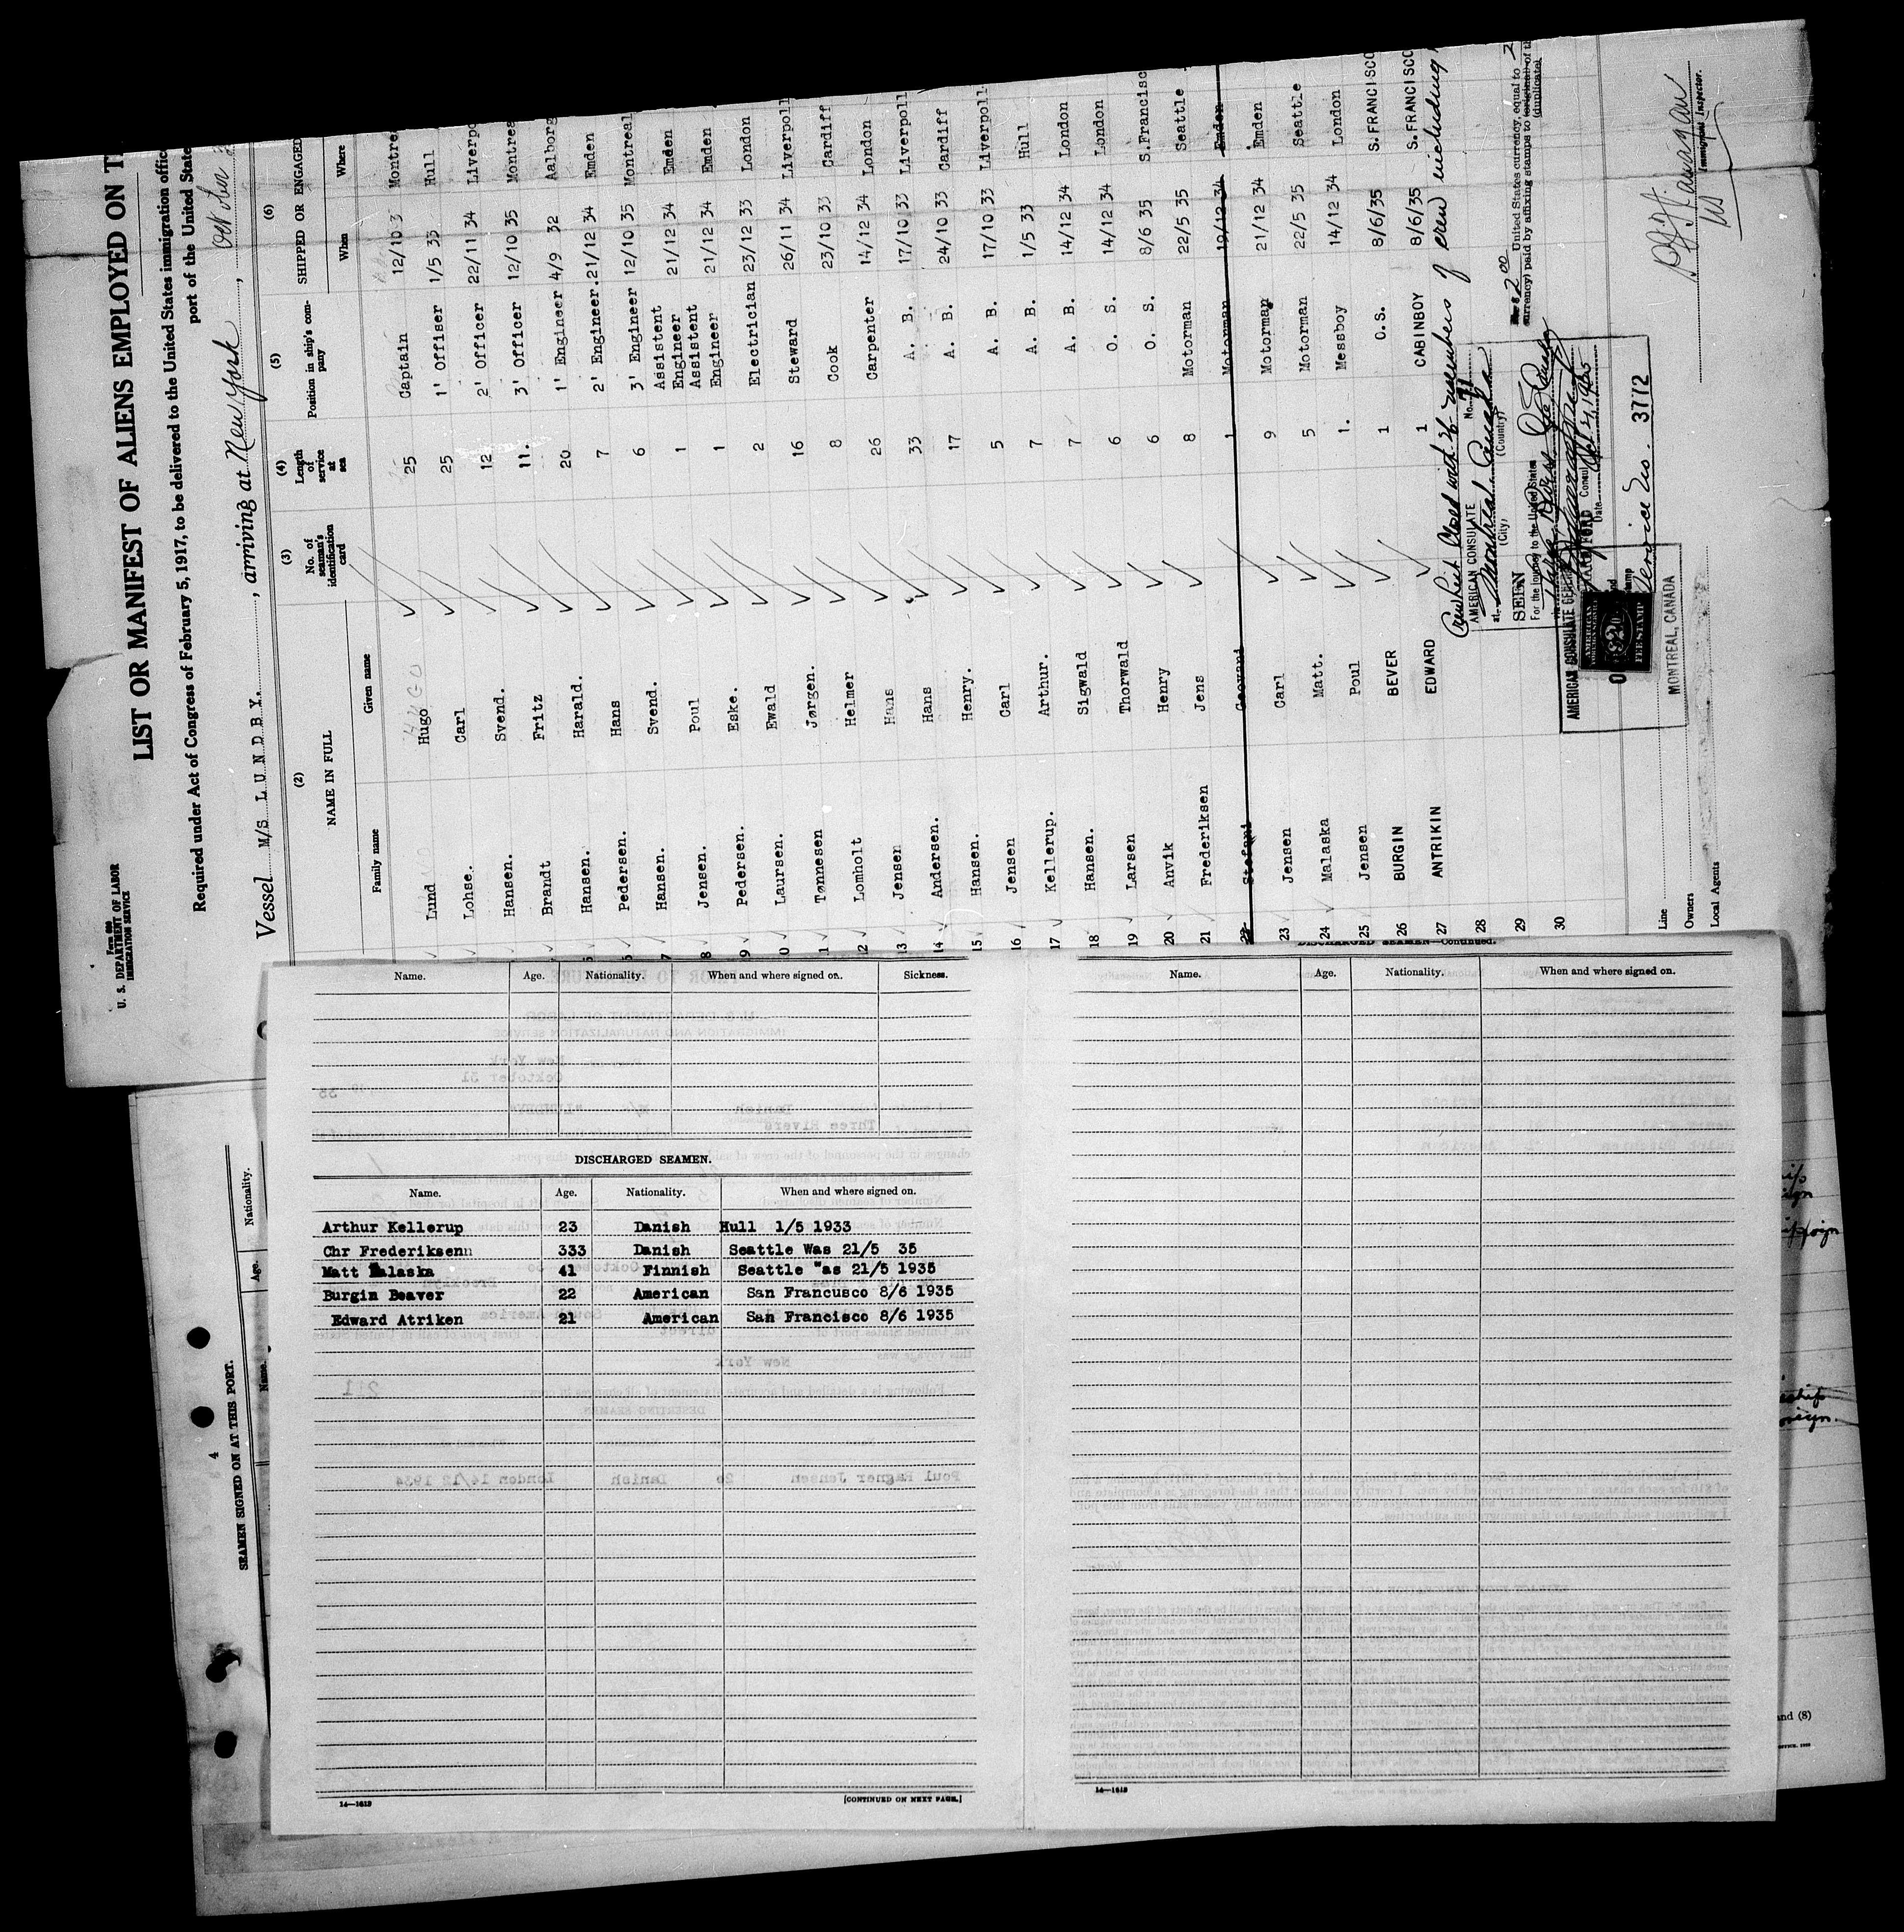 Form 680
U. S. DEPARTMENT OF LABOR
IMMIGRATION SERVICE
LIST OR MANIFEST OF ALIENS EMPLOYED ON T
Required under Act of Congress of February 5, 1917, to be delivered to the United States immigration offic
port of the United State
Vessel M/S LUNDBY. , arriving at New York ,
(2) (3) (4) (5) (6)
NAME IN FULL No. of seaman's identification card Length of service at sea Position in ship's company SHIPPED OR ENGAGED
Family name Given name When Where
HUGO
Lund Hugo 25 Captain 12/10 3 Montre
Lohse. Carl 25 1' Offiser 1/5 33 Hull
Hansen. Svend. 12 2' Officer 22/11 34 Liverpo
Brandt Fritz 11. 3' Officer 12/10 35 Montrea
Hansen. Harald. 20 1' Engineer 4/9 32 Aalborg
Pedersen. Hans 7 2' Engineer. 21/12 34 Emden
7 Hansen. Svend. 6 3' Engineer 12/10 35 Montreal
8 Jensen. Poul 1 Assistent Engineer 21/12 34 Emden
9 Pedersen. Eske. 1 Assistent Engineer 21/12 34 Emden
0 Laursen. Ewald 2 Electrician 23/12 33 London
1 Tønnesen Jørgen. 16 Steward 26/11 34 Liverpoll
12 Lomholt Helmer 8 Cook 23/10 33 Cardiff
13 Jensen Hans 26 Carpenter 14/12 34 London
14 Andersen. Hans 33 A. B. 17/10 33 Liverpoll
15 Hansen. Henry. 17 A. B. 24/10 33 Cardiff
16 Jensen Carl 5 A. B. 17/10 33 Liverpoll
17 Kellerup. Arthur. 7 A. B. 1/5 33 Hull
18 Hansen. Sigwald 7 A. B. 14/12 34 London
19 Larsen Thorwald 6 O. S. 14/12 34 London
20 Anvik Henry 6 O. S. 8/6 35 S.Francisc
21 Frederiksen Jens 8 Motorman 22/5 35 Seattle
22 Stefani Geovani 1 Motorman 19/12 34 Emden
23 Jensen Carl 9 Motorman 21/12 34 Emden
24 Malaska Matt. 5 Motorman 22/5 35 Seattle
25 Jensen Poul 1. Messboy 14/12 34 London
26 BURGIN BEVER 1 O.S. 8/6/35 S.FRANCISCO
27 ANTRIKIN EDWARD 1 CABINBOY 8/6/35 S.FRANCISC
28
29
30
Crewlist closed with 26 members of crew including
AMERICAN CONSULATE No. 71
at Montreal Canada
(City) (Country)
SEEN
For the journey to the United States
Consul
Date Oct 21, 1935
AMERICAN CONSULATE GENERAL
AMERICAN
FEE STAMP
MONTREAL, CANADA
Service No. 3772
2 00 United States currency, equal to
currency) paid by affixing stamps to original of th
(duplicate)
Immigrant Inspector.
Line
Owners
Local Agents
DISCHARGED SEAMEN—Continued.
Name. Age. Nationality. When and where signed on. Sickness.
DISCHARGED SEAMEN.
Name. Age. Nationality. When and where signed on.
Arthur Kellerup 23 Danish Hull 1/5 1933
Chr Frederiksenn 333 Danish Seattle Was 21/5 35
Matt Malaska 41 Finnish Seattle "as 21/5 1935
Burgin Beaver 22 American San Francusco 8/6 1935
Edward Atriken 21 American San Francisco 8/6 1935
14—1619
[CONTINUED ON NEXT PAGE.]
Name. Age. Nationality. When and where signed on.
14—1619
4
SEAMEN SIGNED ON AT THIS PORT.
Name. Age. Nationality.
and (8)